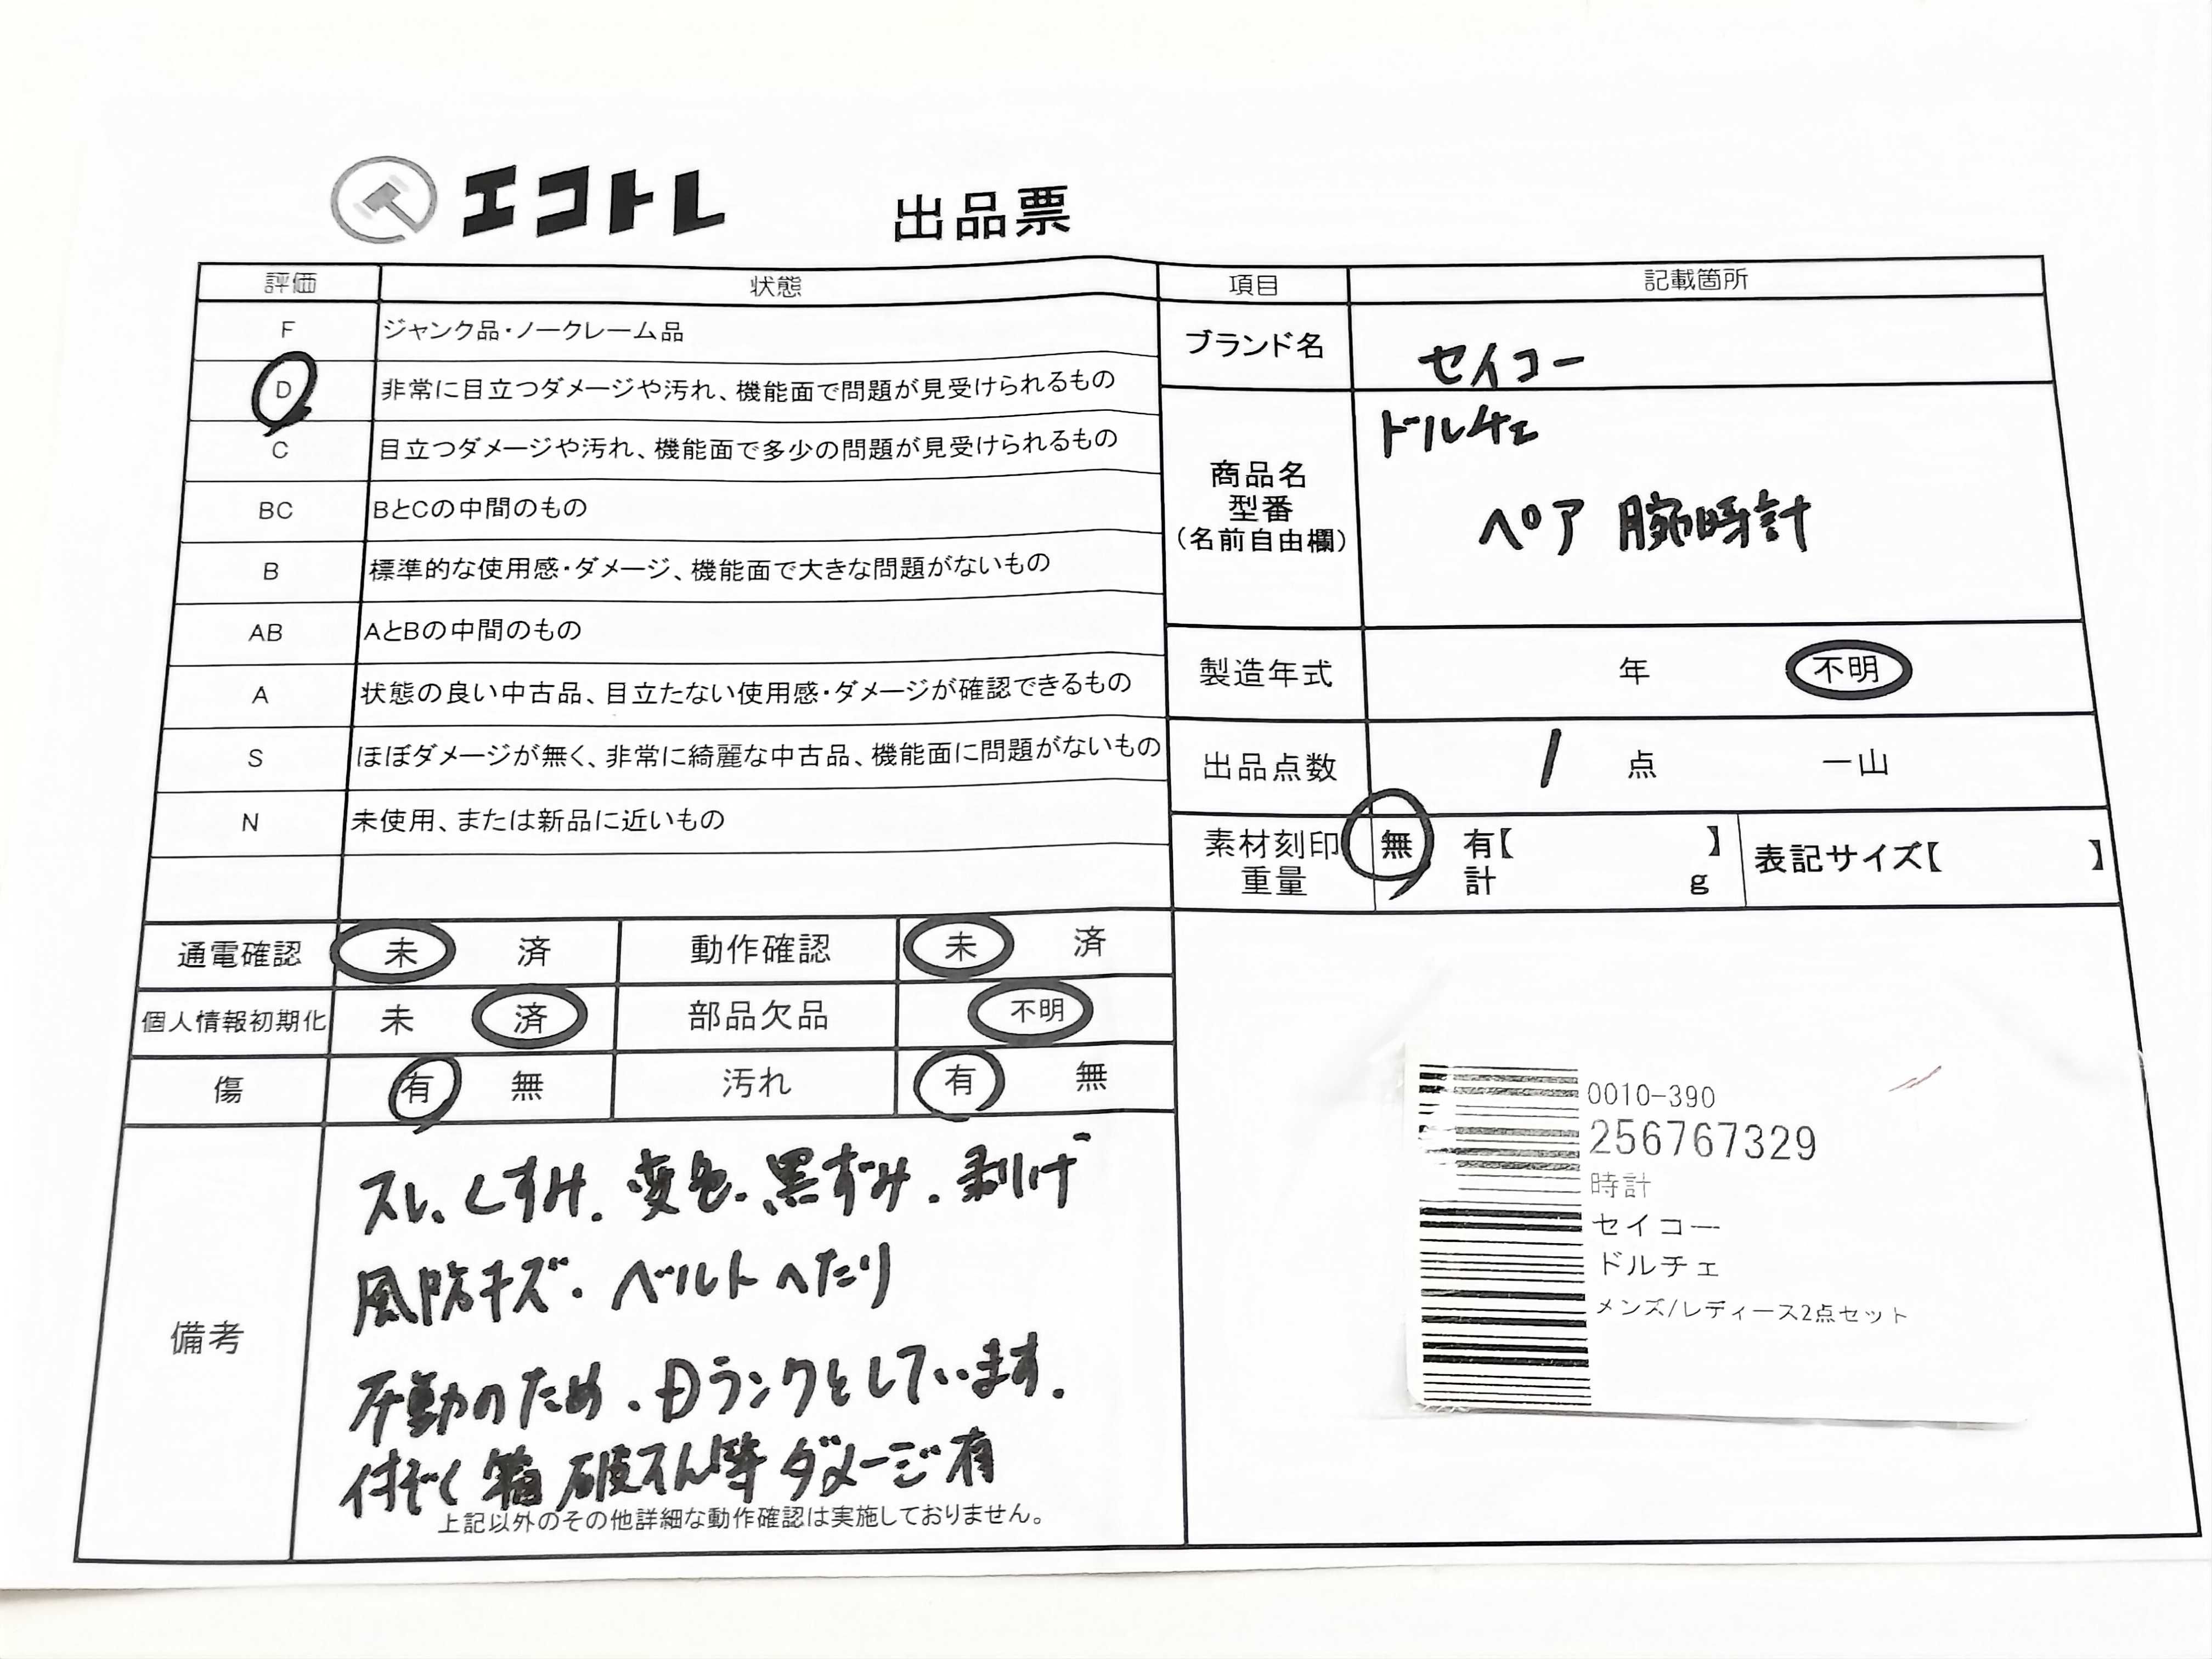 エコトレ 出品票
評価 状態 項目 記載箇所
F ジャンク品・ノークレーム品
D 非常に目立つダメージや汚れ、機能面で問題が見受けられるもの
C 目立つダメージや汚れ、機能面で多少の問題が見受けられるもの
BC BとCの中間のもの
B 標準的な使用感・ダメージ、機能面で大きな問題がないもの
AB AとBの中間のもの
A 状態の良い中古品、目立たない使用感・ダメージが確認できるもの
S ほぼダメージが無く、非常に綺麗な中古品、機能面に問題がないもの
N 未使用、または新品に近いもの
ブランド名 セイコー
商品名
型番
(名前自由欄)
ドルチェ
ペア 腕時計
製造年式 年 不明
出品点数 1 点 一山
素材刻印 無 有【 】
重量 計 g
表記サイズ【 】
通電確認 未 済 動作確認 未 済
個人情報初期化 未 済 部品欠品 不明
傷 有 無 汚れ 有 無
備考
スレ、くすみ、変色、黒ずみ、剥げ
風防キズ、ベルトへたり
不動のため、Dランクとしています.
付ぞく箱 破そん等 ダメージ有
上記以外のその他詳細な動作確認は実施しておりません。
0010-390
256767329
時計
セイコー
ドルチェ
メンズ/レディース2点セット